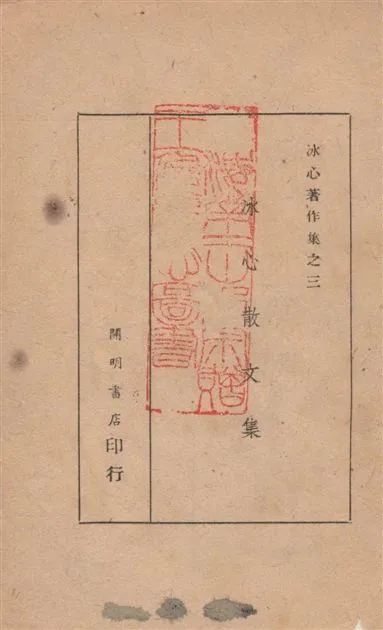 冰心著作集之三
冰心散文集
開明書店印行